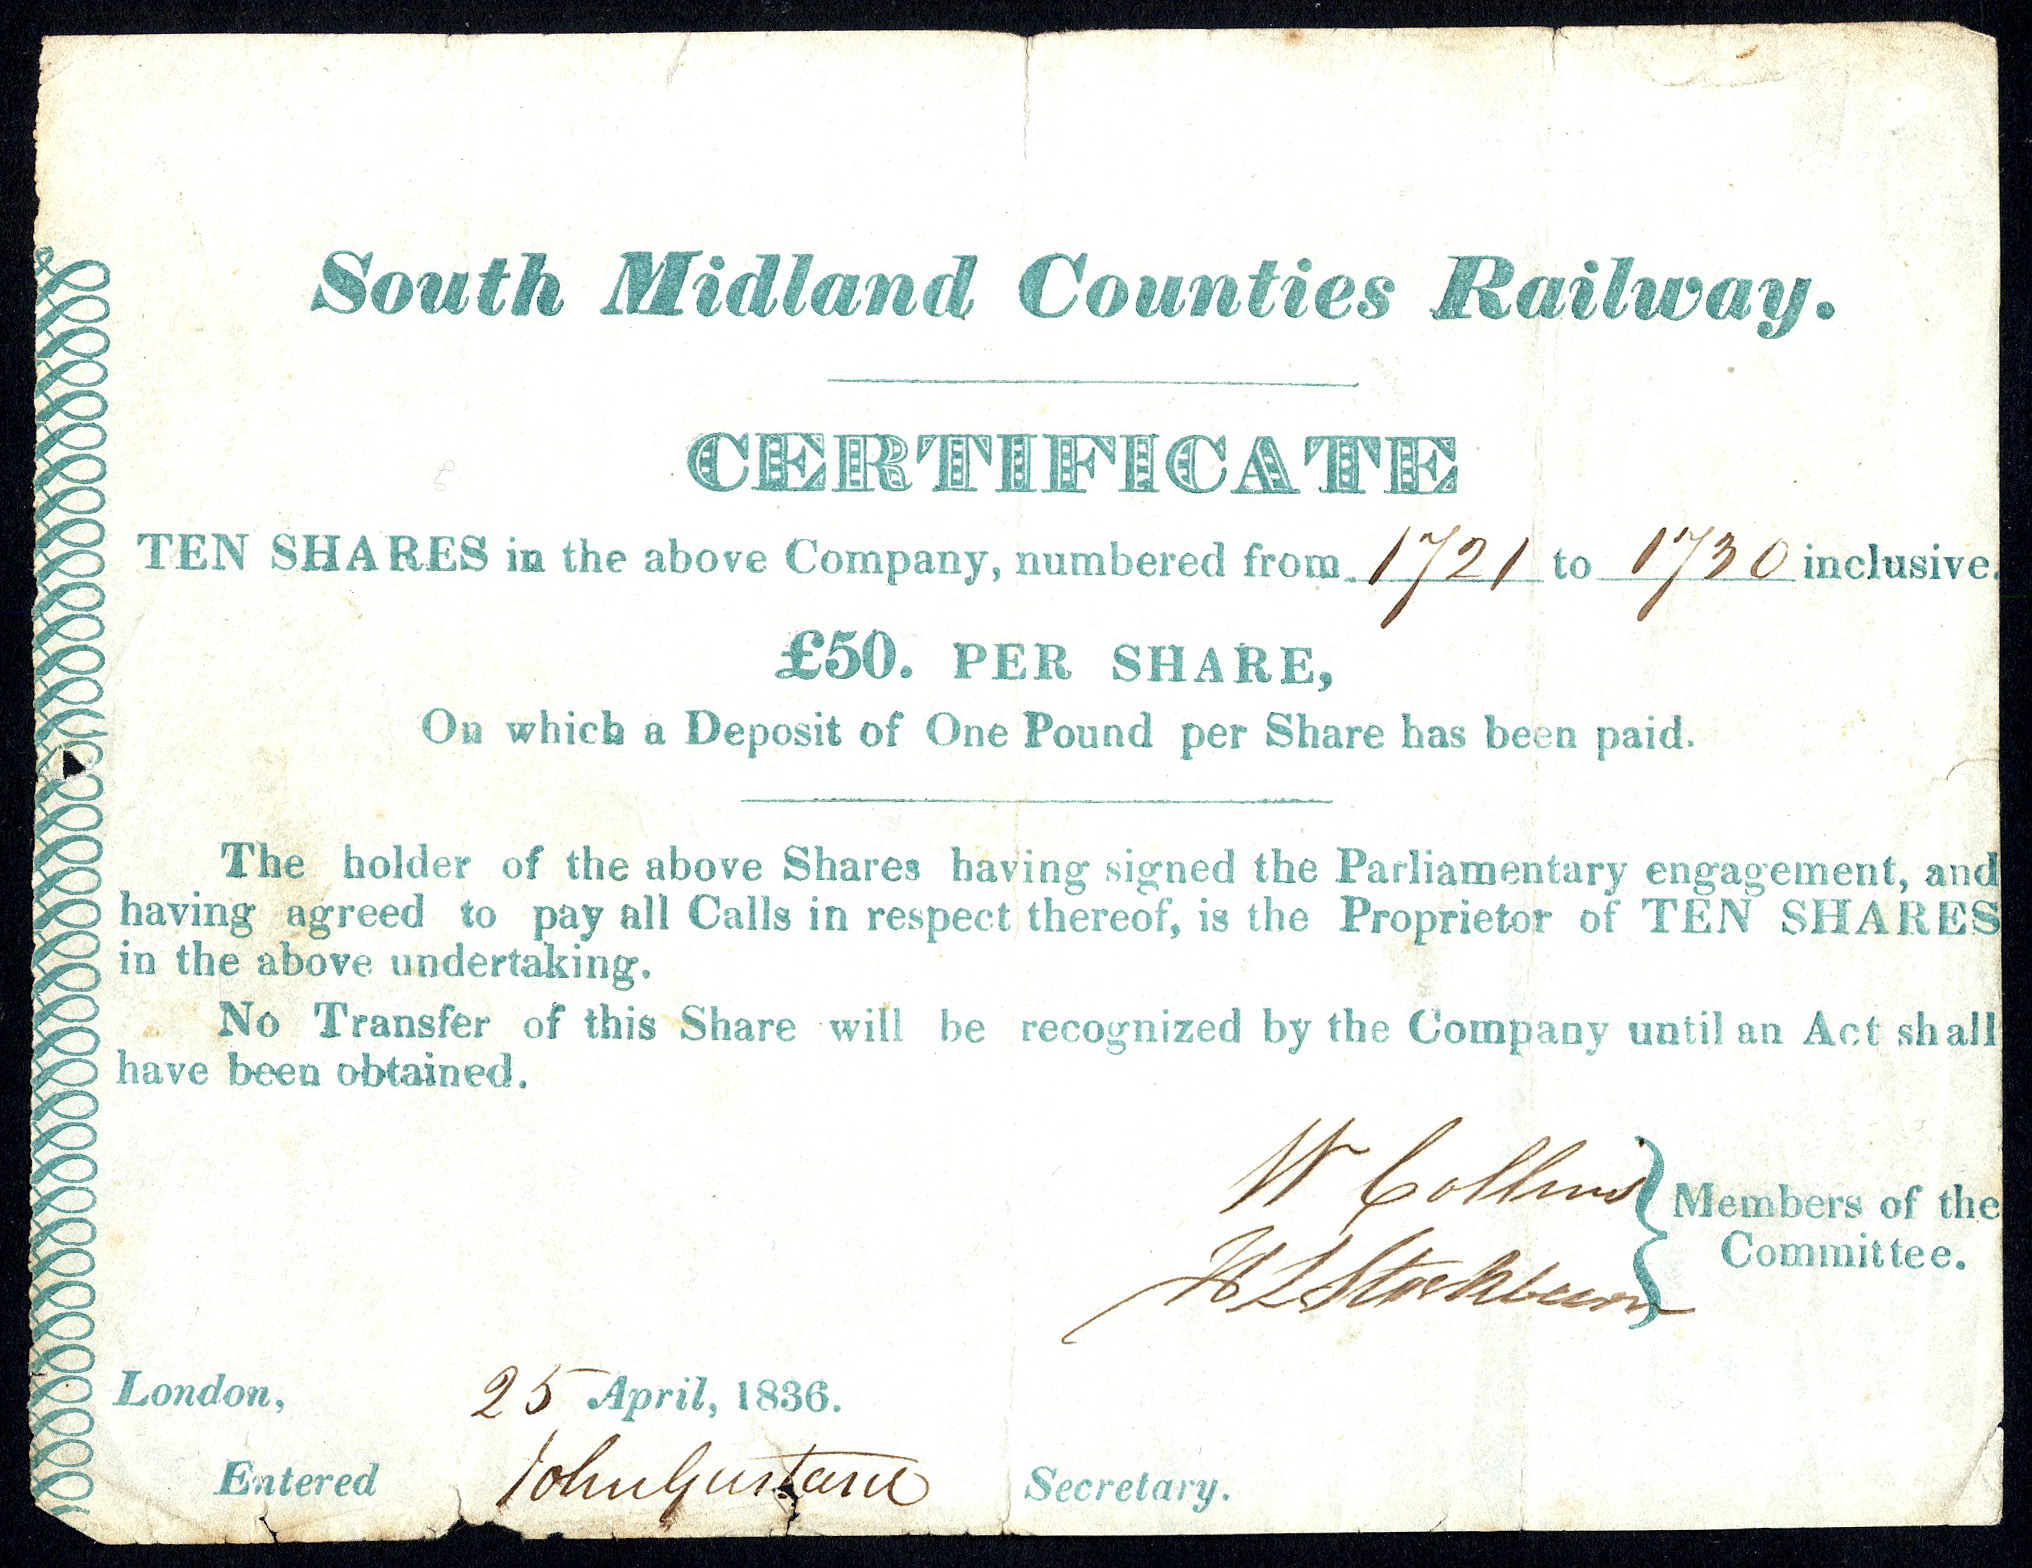 South Midland Counties Railway.
CERTIFICATE
TEN SHARES in the above Company, numbered from 1721 to 1730 inclusive.
£50. PER SHARE,
On which a Deposit of One Pound per Share has been paid.
The holder of the above Shares having signed the Parliamentary engagement, and
having agreed to pay all Calls in respect thereof, is the Proprietor of TEN SHARES
in the above undertaking.
No Transfer of this Share will be recognized by the Company until an Act shall
have been obtained.
W Collins
H L Stockburn
Members of the
Committee.
London, 25 April, 1836.
Entered John Secretary.